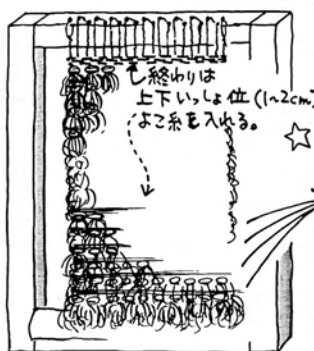 終わりは
上下いっしょ位(1~2cm)
よこ糸を入れる。